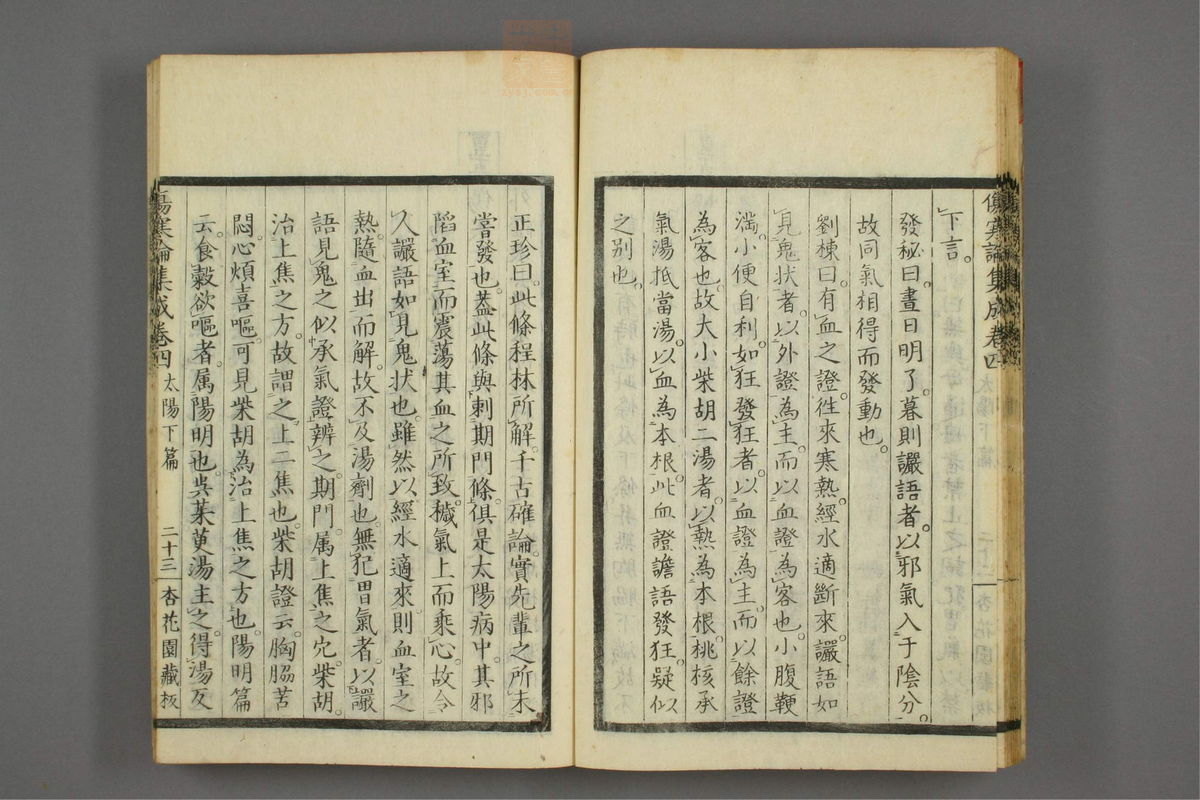 下言。
發秘曰。晝日明了。暮則讝語者。以邪氣入于陰分。
故同氣相得而發動也。
劉棟曰。有血之證。往來寒熱。經水適斷來。讝語如
見鬼狀者。以外證為主。而以血證為客也。小腹鞕
滿。小便自利。如狂發狂者。以血證為主。而以餘證
為客也。故大小柴胡二湯者。以熱為本根。桃核承
氣湯抵當湯。以血為本根。此血證譫語發狂。疑似
之別也。
正珍曰。此條程林所解。千古確論。實先輩之所未
嘗發也。蓋此條與刺期門條。俱是太陽病中。其邪
陷血室。而震蕩其血之所致。穢氣上而乘心。故令
人讝語如見鬼狀也。雖然以經水適來。則血室之
熱。隨血出而解。故不及湯劑也。無犯胃氣者。以讝
語見鬼之似承氣證。辨之。期門。属上焦之穴。柴胡。
治上焦之方。故謂之上二焦也。柴胡證云。胸脇苦
悶。心煩喜嘔。可見柴胡為治上焦之方也。陽明篇
云。食穀欲嘔者。属陽明也。吳茱萸湯主之。得湯反
傷寒論集成卷四 太陽下篇 二十三 杏花園藏板
傷寒論集成卷四